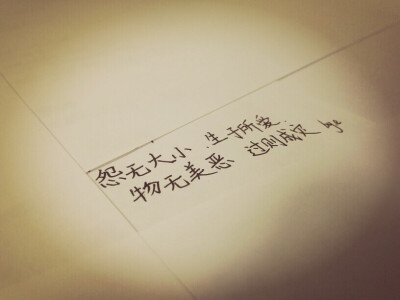 怨无大小 生于所爱.
物无美恶 过则成灾